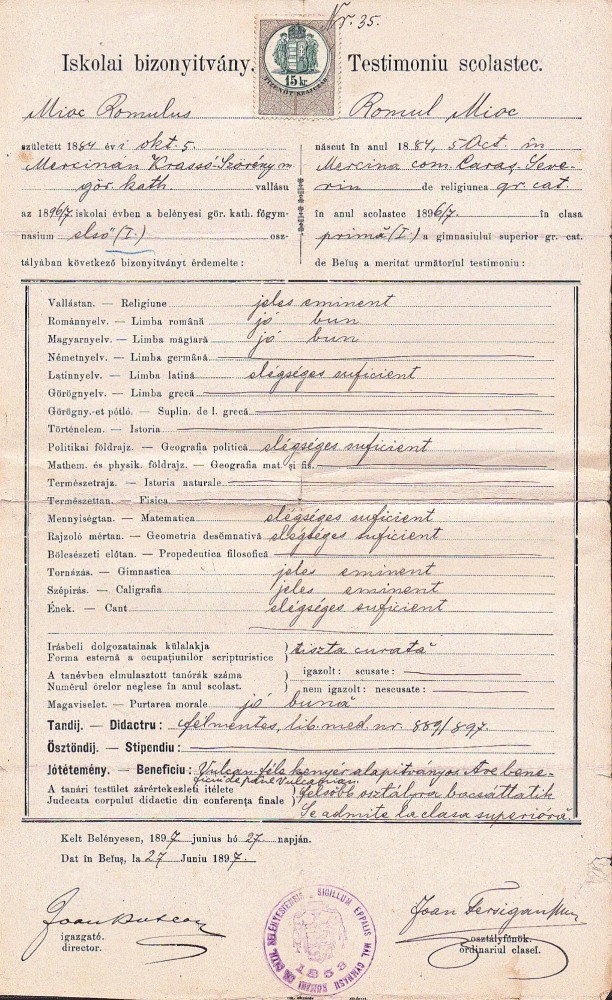 Nr. 35.
15 kr.
TIZENÖT KRAJCZÁR
Iskolai bizonyitvány. Testimoniu scolastec.
Mioc Romulus Romul Mioc
született 1884 évi okt. 5. născut în anul 1884, 5 Oct. în
Mercinán Krassó-Szörény m Mercina com. Caraş-Seve-
gör. kath. vallásu rin de religiunea gr. cat.
az 1896/7 iskolai évben a belényesi gör. kath. főgym- în anul scolastec 1896/7. în clasa
nasium első (I.) osz- primă (I.) a gimnasiului superior gr. cat.
tályában következő bizonyitványt érdemelte: de Beiuş a meritat următoriul testimoniu:
Vallástan. — Religiune jeles eminent
Románnyelv. — Limba română jó bun
Magyarnyelv. — Limba măgiară jó bun
Németnyelv. — Limba germână
Latinnyelv. — Limba latină elégséges suficient
Görögnyelv. — Limba grecă
Görögny.-et pótló. — Suplin. de l. grecă
Történelem. — Istoria
Politikai földrajz. — Geografia politică elégséges suficient
Mathem. és physik. földrajz. — Geografia mat. și fis.
Természetrajz. — Istoria naturale
Természettan. — Fisica
Mennyiségtan. — Matematica elégséges suficient
Rajzoló mértan. — Geometria desēmnativă elégséges suficient
Bölcsészeti előtan. — Propedeutica filosofică
Tornázás. — Gimnastica jeles eminent
Szépirás. — Caligrafia jeles eminent
Ének. — Cant elégséges suficient
Irásbeli dolgozatainak külalakja
Forma esternă a ocupaţiunilor scripturistice } tiszta curată
A tanévben elmulasztott tanórák száma igazolt: scusate:
Numērul órelor neglese în anul scolast. } nem igazolt: nescusate:
Magaviselet. — Purtarea morale jó bună
Tandij. — Didactru: félmentes, lib. med. nr. 889/897.
Ösztöndij. — Stipendiu:
Jótétemény. — Beneficiu: Vulcan-féle kenyér alapitványos Are bene-
ficiu de pane Vulcanian.
A tanári testület zárértekezleti itélete
Judecata corpului didactic din conferenţa finale } felsőbb osztályra bocsáttatik
Se admite la clasa superioră.
Kelt Belényesen, 1897 junius hó 27 napján.
Dat în Beiuş, la 27 Juniu 1897.
igazgató.
director.
SIGILLUM EPPALIS MAI. GYMNASII ROMANI GR. CATH. BELÉNYESIENSIS
1853
Joan
osztályfőnök.
ordinariul clasei.